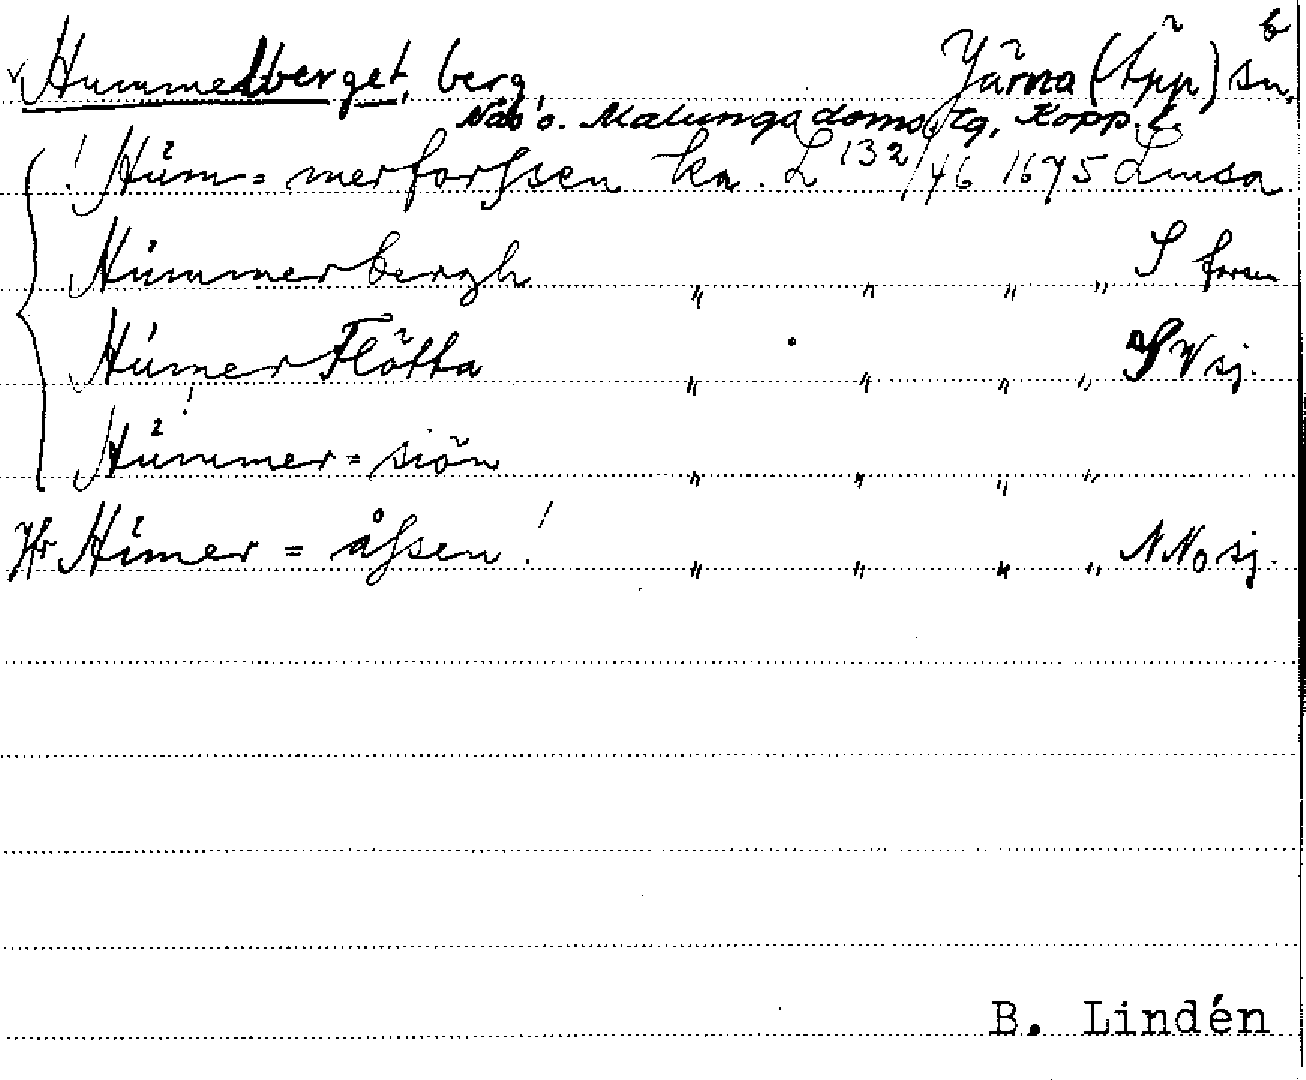 v Hummelberget, berg, Järna (öpp) sn. b
Nås o. Malungs doms. tg, Kopp. l.
! Hum= merforssen ka. L 132/46 1675 Limsa
Hummerbergh " " " " S forsen
HumerFlötta " " " " SV sj.
Hummer=siön ! " " " "
Jfr Humer = åssen ! " " " " NNO sj.
B. Lindén